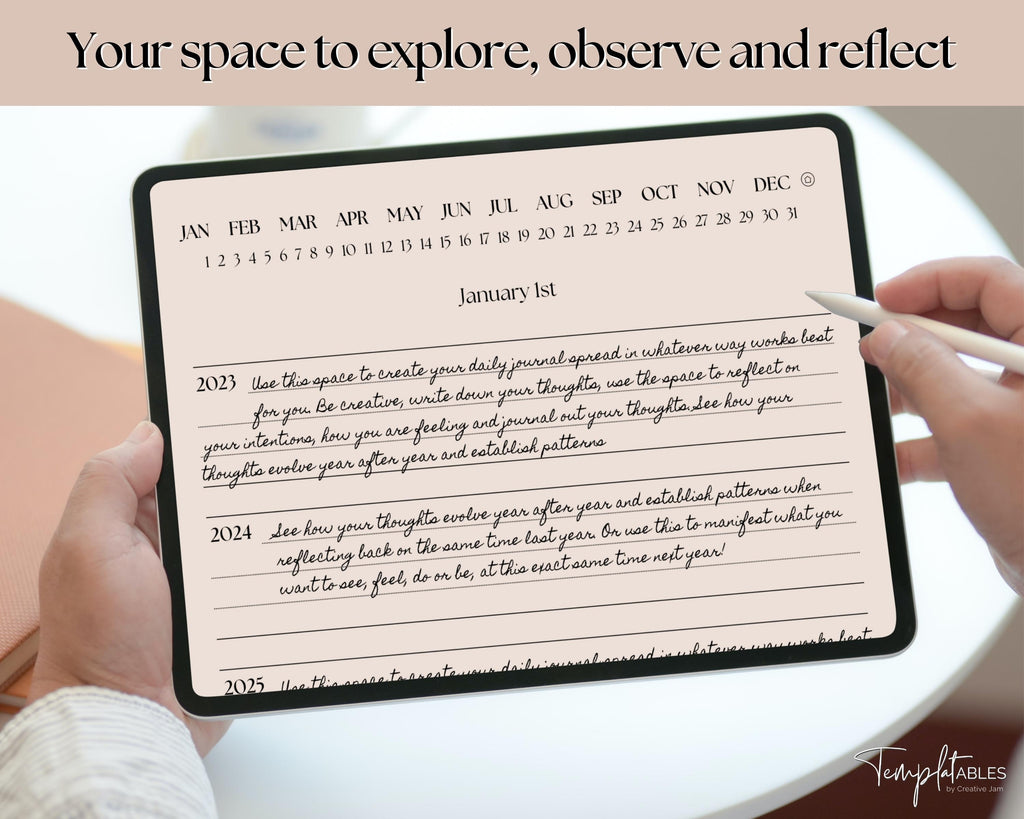 Your space to explore, observe and reflect
JAN FEB MAR APR MAY JUN JUL AUG SEP OCT NOV DEC
1 2 3 4 5 6 7 8 9 10 11 12 13 14 15 16 17 18 19 20 21 22 23 24 25 26 27 28 29 30 31
January 1st
2023 Use this space to create your daily journal spread in whatever way works best
for you. Be creative, write down your thoughts, use the space to reflect on
your intentions, how you are feeling and journal out your thoughts. See how your
thoughts evolve year after year and establish patterns
2024 See how your thoughts evolve year after year and establish patterns when
reflecting back on the same time last year. Or use this to manifest what you
want to see, feel, do or be, at this exact same time next year!
2025 Use this space to create your daily journal spread in whatever way works best
TEMPLATABLES
by Creative Jam